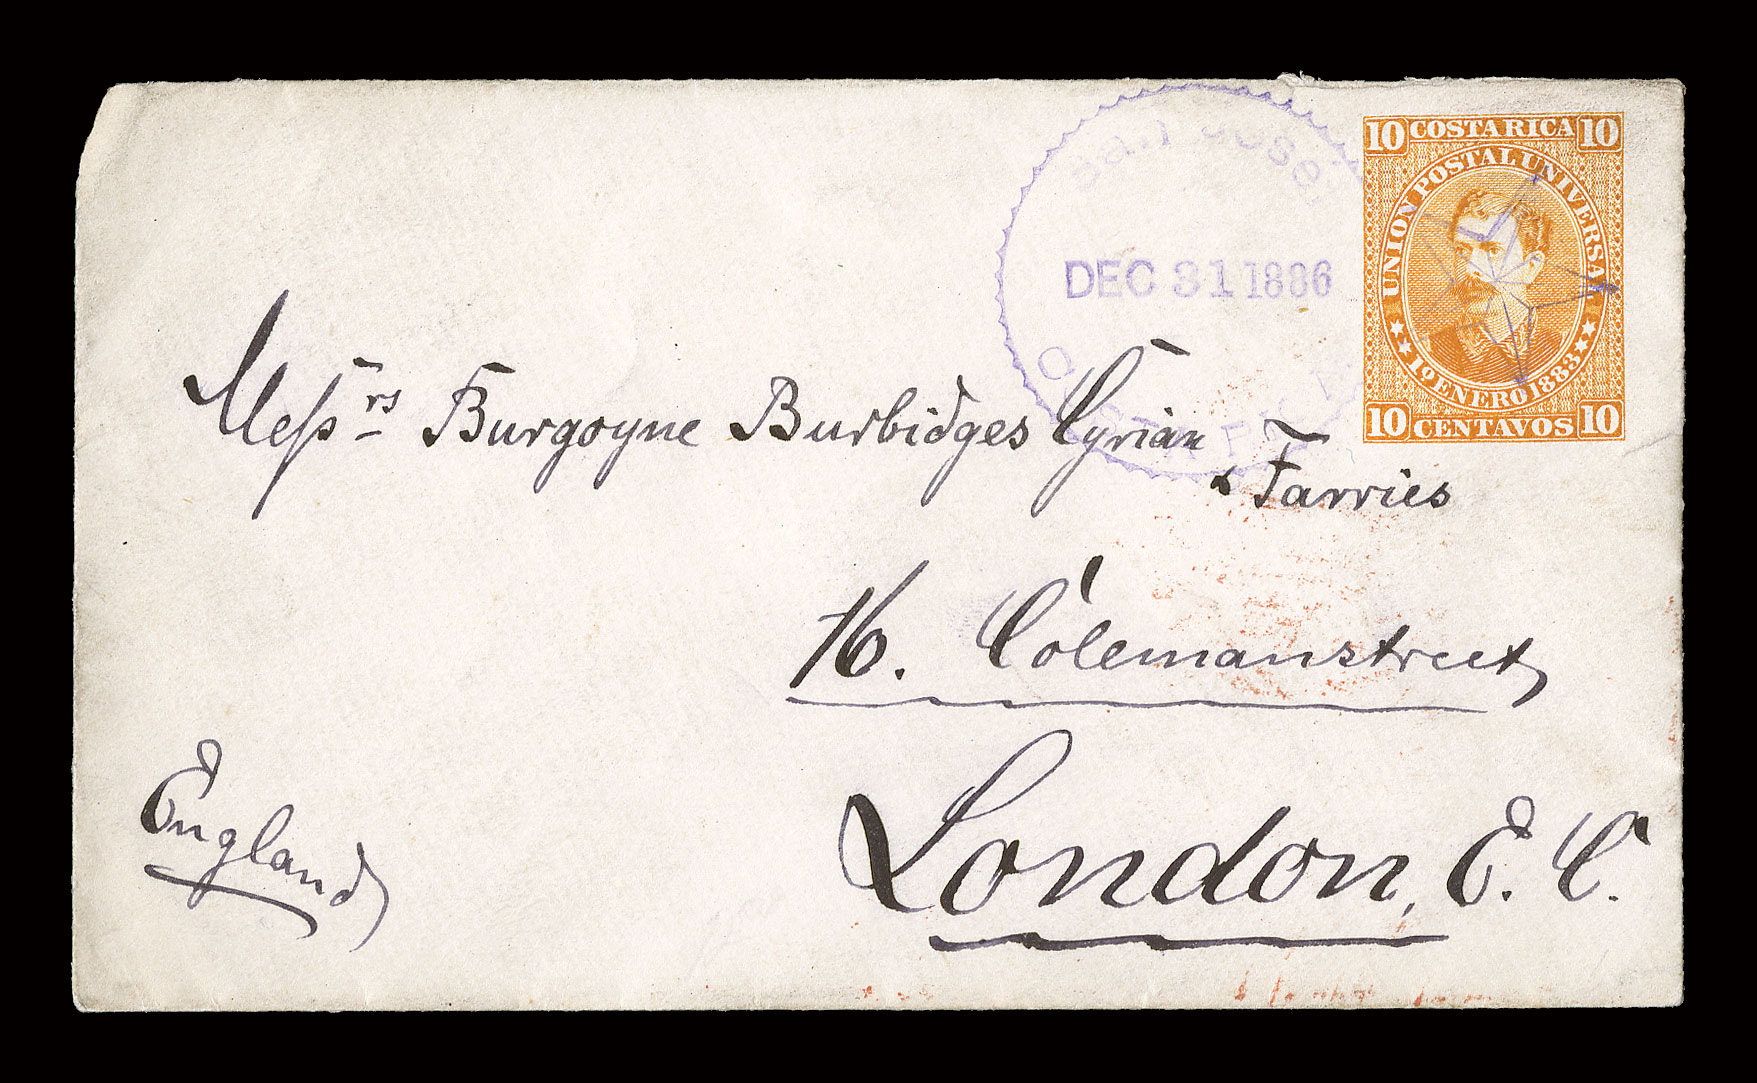 10 COSTA RICA 10
UNION POSTAL UNIVERSAL
1º ENERO 1883
10 CENTAVOS 10
San José
DEC 31 1886
COSTA RICA
Messrs Burgoyne Burbidges Cyrian
& Farries
16. Colemanstreet,
London, E. C.
England